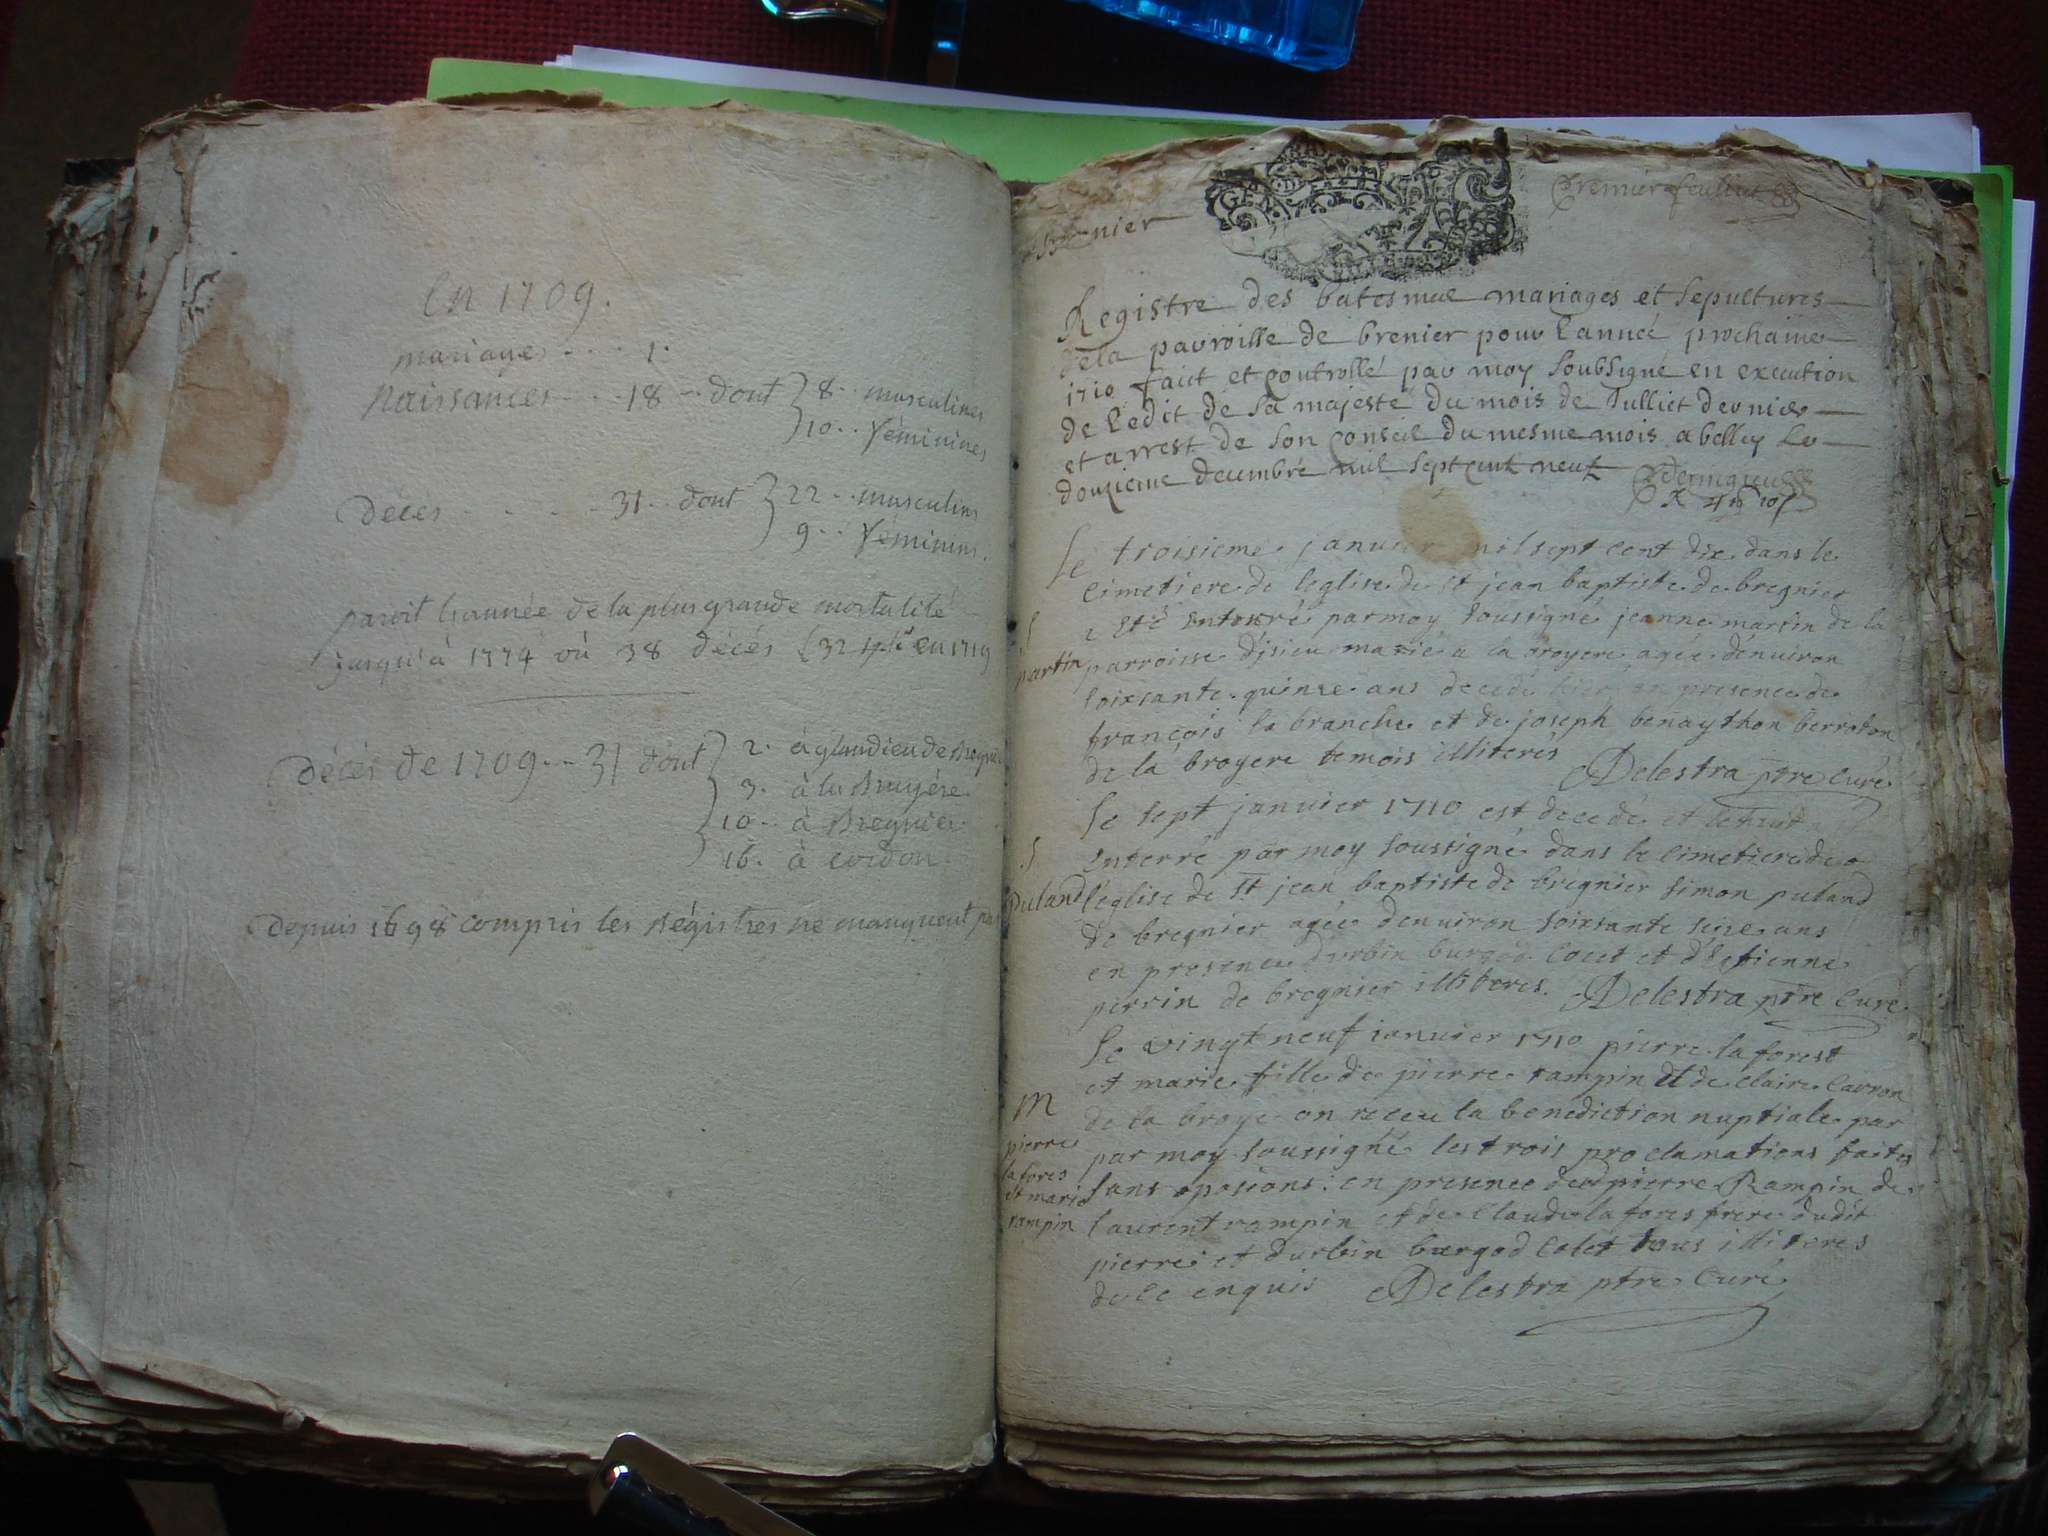 En 1709.
mariages . . . . 1.
Naissances . . . . 18 . . dont 8 . . masculines
10 . . féminines
Décès . . . . . 31 . . dont 22 . . masculins
9 . . féminins.
paroit l'année de la plus grande mortalité
jusqu'à 1774 où 38 décès (32 en 1719
Décès de 1709 . . 31 dont 2. à glandieu de
3. à la Bruyére
10 . . à Bregnier
16. à cordon
Depuis 1698 compris les Régistres ne manquent pas
Brenier
GEN D
Premier feuliet
Registre des batesmae mariages et sepultures
de la parroille de brenier pour lannée prochaine
1710 faict et controllé par moy soubsigné en execution
de ledit de sa majesté du mois de Julliet dernier
et arrest de son conseil du mesme mois a belley le
douzieme decembre mil sept cent neuf
Le troisieme janvier mil sept cent dix dans le
cimetiere de leglise de st jean baptiste de bregnier
a eté enterré par moy soussigné jeanne martin de la
S
martin
parroisse d'jsieu marié a la broyere agée denuiron
soixante quinze ans decedé hier en presence de
françois la branche et de joseph benaython berreton
de la broyere temois illiterés Delestra ptre curé
Le sept janvier 1710 est decedé et
S
Puland
enterré par moy soussigné dans le cimetiere de
l'eglise de st jean baptiste de bregnier simon puland
de bregnier agée denuiron soixsante seize ans
en presence durbin burgod colet et d'Estienne
perrin de bregnier illiteres. Delestra ptre curé
Le vingt neuf ianuier 1710 pierre la forest
et marie fille de pierre rampin et de claire carron
M
pierre
la fores
et marie
rampin
de la broye on receu la benediction nuptiale par
par moy soussigné les trois proclamations faites
sans oposions en presence de pierre Rampin de
laurent rampin et de claude la fores frere dudit
pierre et durbin burgod colet tous illiteres
de ce enquis Delestra ptre curé